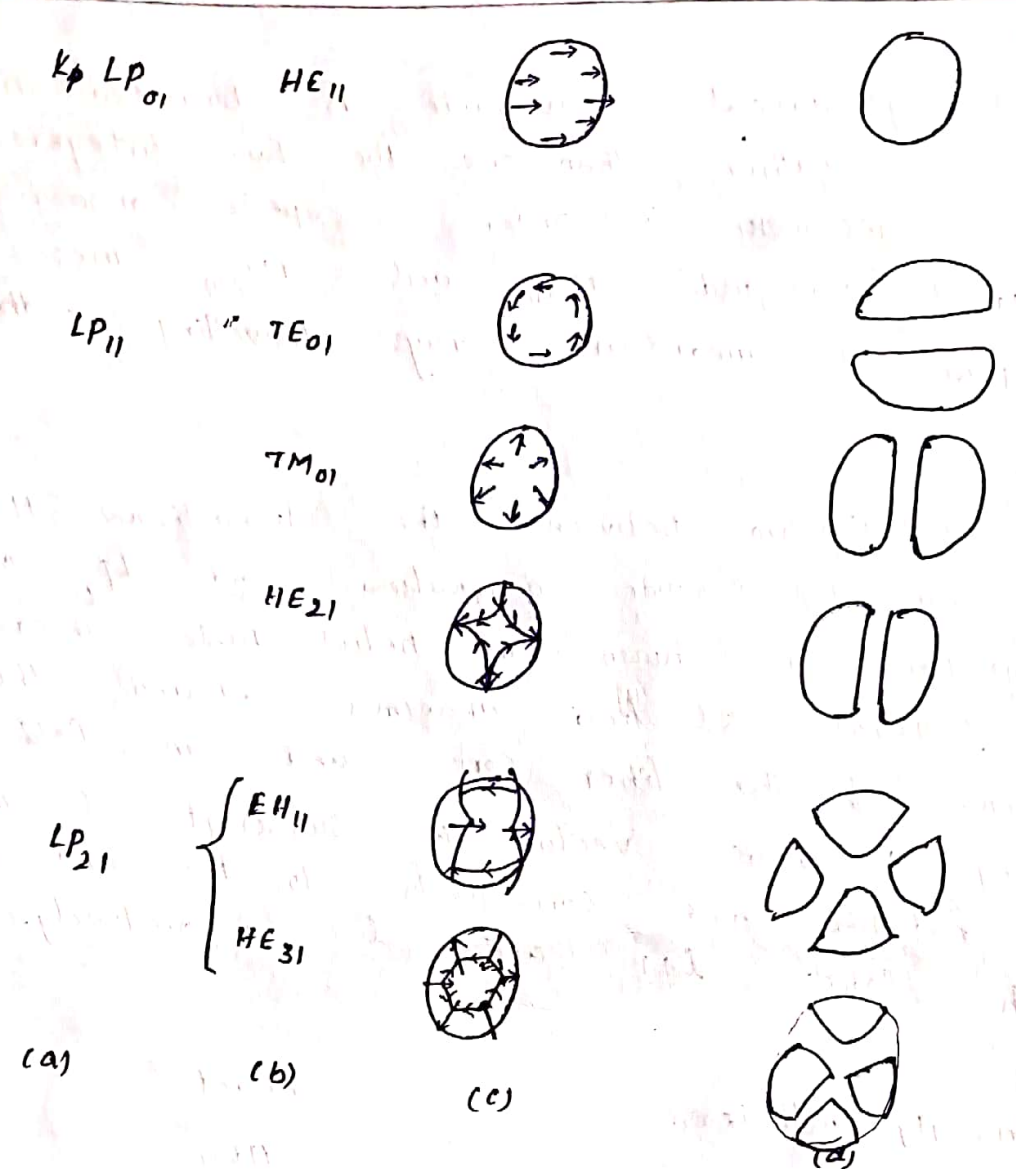 LP01 HE11
LP11 TE01
TM01
HE21
LP21 EH11
HE31
(a) (b) (c) (d)